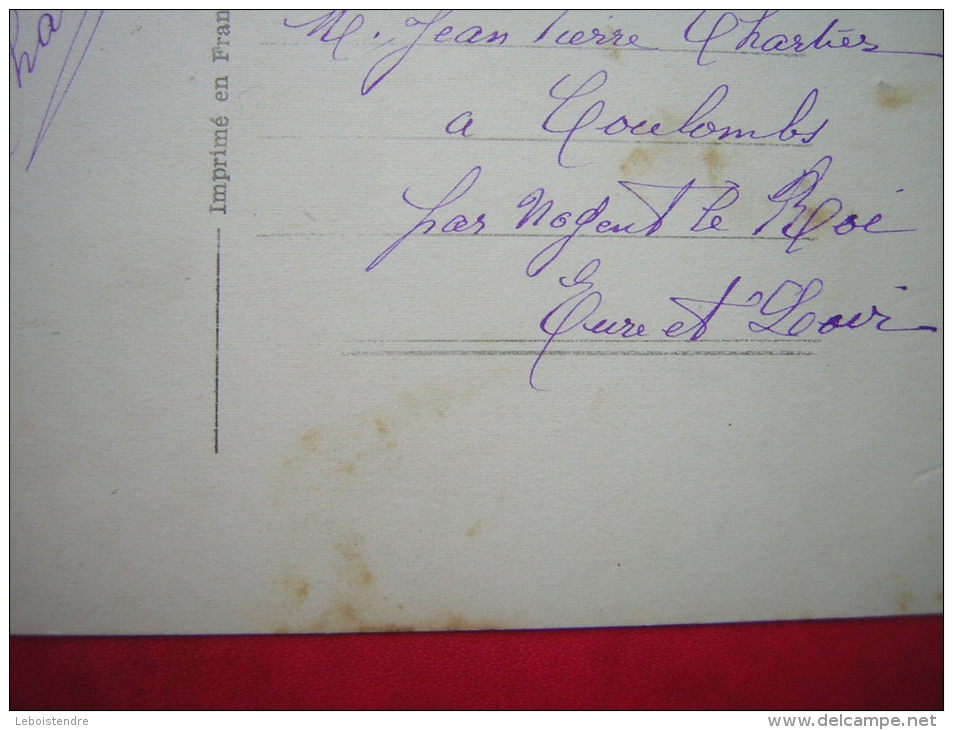 M. Jean Pierre Chartier
a Coulombs
par Nogent le Roi
Eure et Loir
Imprimé en Fran
cha
Leboistendre
www.delcampe.net